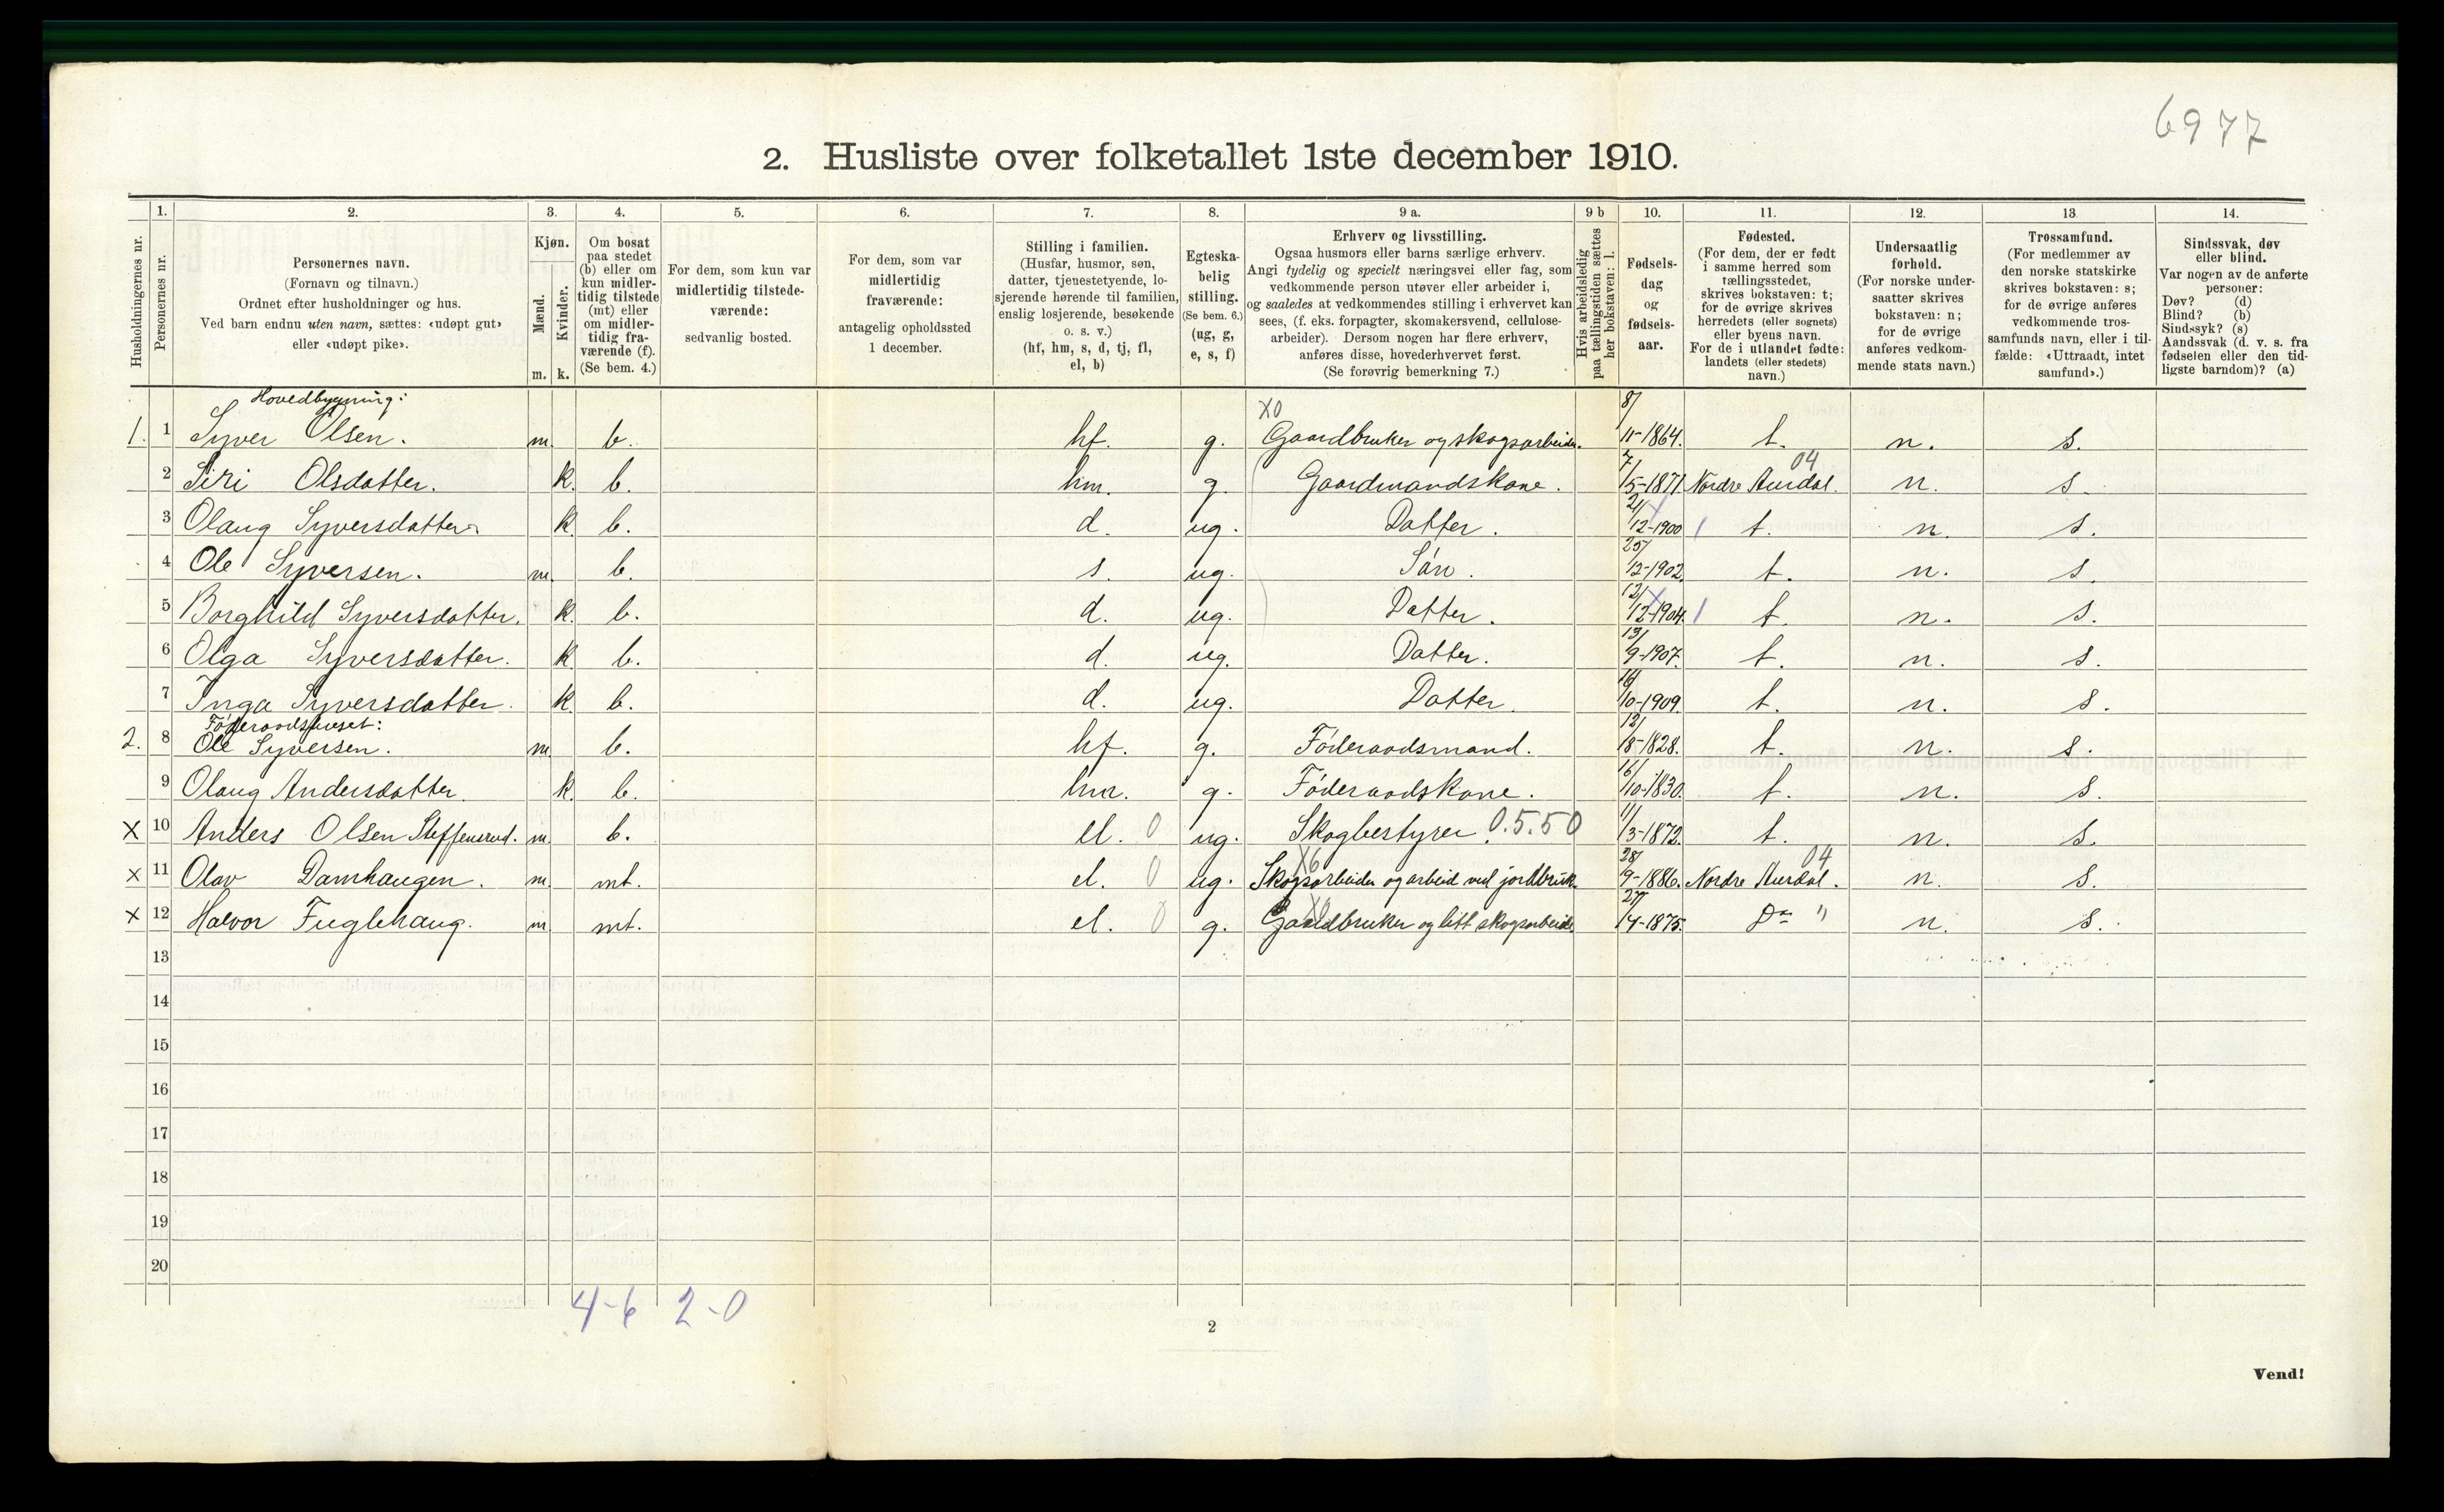 6977
2. Husliste over folketallet 1ste december 1910.
Husholdningernes nr.
1. Personernes nr.
2. Personernes navn.
(Fornavn og tilnavn.)
Ordnet efter husholdninger og hus.
Ved barn endnu uten navn, sættes: «udøpt gut»
eller «udøpt pike».
3. Kjøn.
Mænd. Kvinder.
m. k.
4. Om bosat
paa stedet
(b) eller om
kun midler-
tidig tilstede
(mt) eller
om midler-
tidig fra-
værende (f).
(Se bem. 4.)
5. For dem, som kun var
midlertidig tilstede-
værende:
sedvanlig bosted.
6. For dem, som var
midlertidig
fraværende:
antagelig opholdssted
1 december.
7. Stilling i familien.
(Husfar, husmor, søn,
datter, tjenestetyende, lo-
sjerende hørende til familien,
enslig losjerende, besøkende
o. s. v.)
(hf, hm, s, d, tj, fl,
el, b)
8. Egteska-
belig
stilling.
(Se bem. 6.)
(ug, g,
e, s, f)
9 a. Erhverv og livsstilling.
Ogsaa husmors eller barns særlige erhverv.
Angi tydelig og specielt næringsvei eller fag, som
vedkommende person utøver eller arbeider i,
og saaledes at vedkommendes stilling i erhvervet kan
sees, (f. eks. forpagter, skomakersvend, cellulose-
arbeider). Dersom nogen har flere erhverv,
anføres disse, hovederhvervet først.
(Se forøvrig bemerkning 7.)
9 b Hvis arbeidsledig
paa tællingstiden sættes
her bokstaven: l.
10. Fødsels-
dag
og
fødsels-
aar.
11. Fødested.
(For dem, der er født
i samme herred som
tællingsstedet,
skrives bokstaven: t;
for de øvrige skrives
herredets (eller sognets)
eller byens navn.
For de i utlandet fødte:
landets (eller stedets)
navn.)
12. Undersaatlig
forhold.
(For norske under-
saatter skrives
bokstaven: n;
for de øvrige
anføres vedkom-
mende stats navn.)
13 Trossamfund.
(For medlemmer av
den norske statskirke
skrives bokstaven: s;
for de øvrige anføres
vedkommende tros-
samfunds navn, eller i til-
fælde: «Uttraadt, intet
samfund».)
14. Sindssvak, døv
eller blind.
Var nogen av de anførte
personer:
Døv? (d)
Blind? (b)
Sindssyk? (s)
Aandssvak (d. v. s. fra
fødselen eller den tid-
ligste barndom)? (a)
Hovedbygning:
1. 1 Syver Olsen. m. b. hf. g. X0 Gaardbruker og skogsarbeider. 8/11-1864. t. n. s.
2 Siri Olsdatter. k. b. hm. g. Gaardmandskone. 7/5-1871. Nordre Aurdal. 04 n. s.
3 Olaug Syversdatter. k. b. d. ug. Datter. 21/12-1900 t. n. s.
4 Ole Syversen. m. b. s. ug. Søn. 25/12-1902. t. n. s.
5 Borghild Syversdatter. k. b. d. ug. Datter. 12/12-1904. t. n. s.
6 Olga Syversdatter. k. b. d. ug. Datter. 13/9-1907. t. n. s.
7 Inga Syversdatter. k. b. d. ug. Datter. /10-1909. t. n. s.
Föderaadshuset:
2. 8 Ole Syversen. m. b. hf. g. Föderaadsmand. 12/8-1828. t. n. s.
9 Olaug Andersdatter. k. b. hm. g. Föderaadskone. 16/10-1830. t. n. s.
X 10 Anders Olsen Steffensrud. m. b. el. 0 ug. Skogbestyrer. 0.5.50 11/3-1872. t. n. s.
X 11 Olav Damhaugen. m. mt. el. 0 ug. X6 Skogsarbeider og arbeid ved jordbruk. 28/9-1886. Nordre Aurdal. 04 n. s.
X 12 Halvor Fuglehaug. m mt. el. 0 g. X0 Gaardbruker og litt skogsarbeide. 27/4-1875. Do " n. s.
13
14
15
16
17
18
19
20
4-6 2-0
2
Vend!